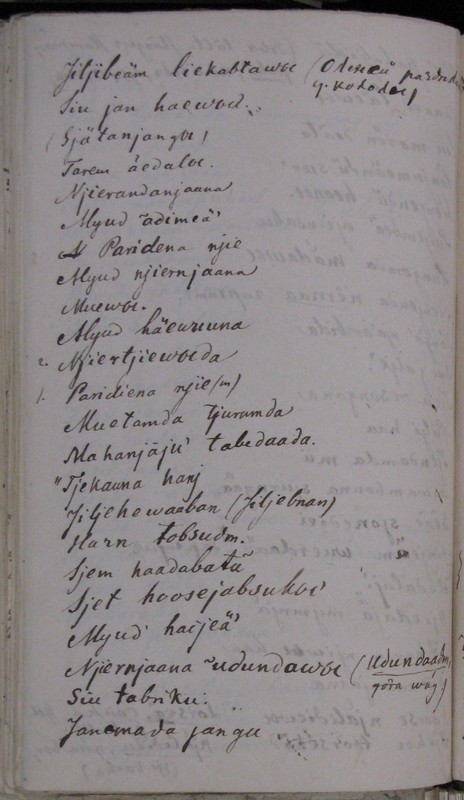 Jiljibeäm liekabtawoe (Олией разъезд
у. Колодец)
Siu jan haewod.
(Sjätanjangoe)
Tarem äedaloe.
Njierandanjaana
Myud ädimeä'
Paridena njie
Myud njiernjaana
Muewoe.
Myud häewuuna
2. Njiertjiewoeda
1. Paridiena njie(m)
Muetamda tjurumda
Mahanjäju' tabedaada.
"Tjekauna hanj
Jiljehewaaban (Jiljebnan)
Harn tobsudm.
Sjem haadabatä
Sjet hoosejabsukoe'
Myud haijeä'
Njiernjaana udundawoe (Udundaadm,
gota wäg.)
Siu tabriku.
Janemada jangu